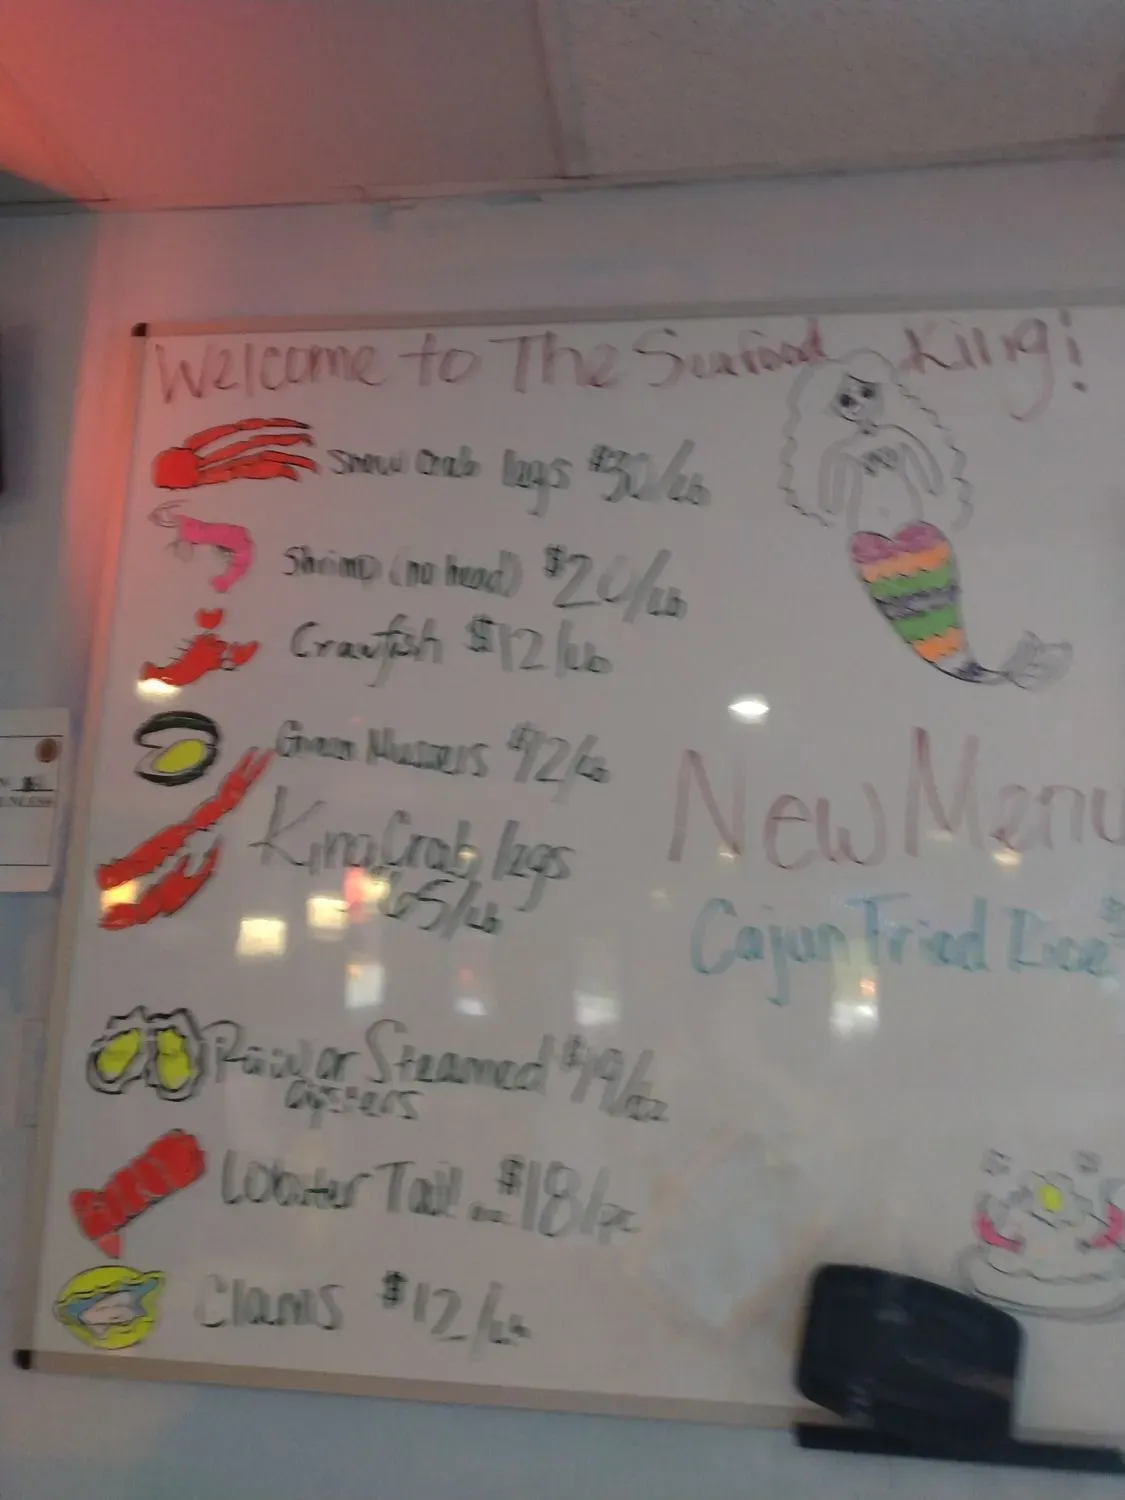 Welcome to The Seafood King!
Snow Crab legs $30/Lb
Shrimp (no head) $20/Lb
Crawfish $12/Lb
Green Mussels $12/Lb
King Crab legs
$65/Lb
New Menu
Cajun Fried Rice $
Raw or Steamed $19/dz
Oysters
Lobster Tail $18/pc
Clams $12/Lb